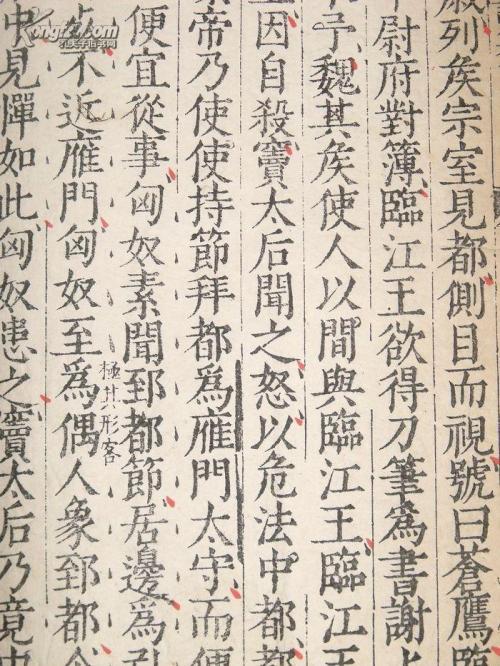 列矦宗室見都側目而視號曰蒼鷹
尉府對簿臨江王欲得刀筆爲書謝
予魏其矦使人以間與臨江王臨江王
因自殺竇太后聞之怒以危法中都
帝乃使使持節拜都爲雁門太守而便
便宜從事匈奴素聞郅都節居邊爲引
不近雁門匈奴至爲偶人象郅都
極其形容
中見憚如此匈奴患之竇太后乃竟中